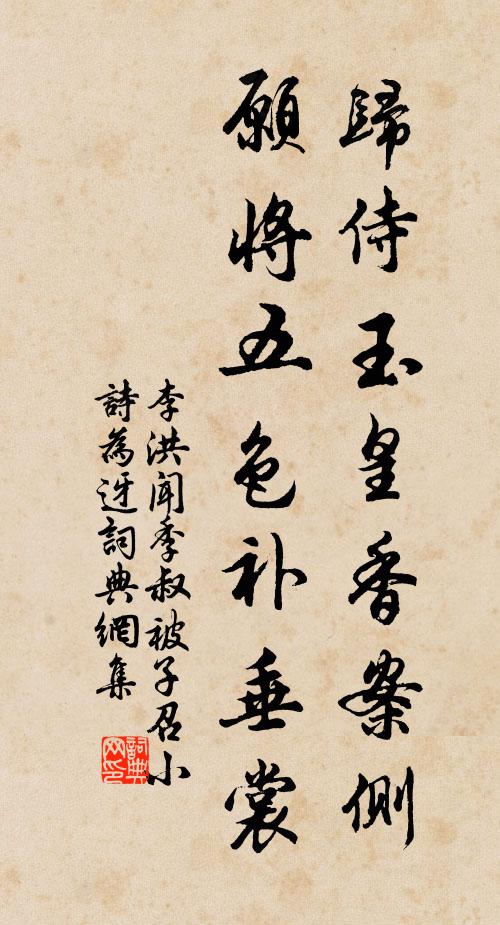 歸侍玉皇香案側
願將五色补垂裳
李洪闻季叔被子召小
詩為迓詞典網集
詞典网印